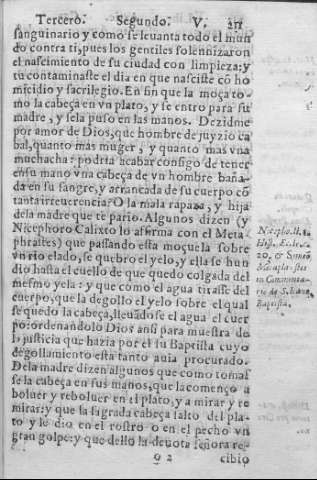 Tercero. Segundo. V. 211
sanguinario y como se leuanta todo el mun
do contra ti, pues los gentiles solennizaron
el nascimiento de su ciudad con limpieza: y
tu contaminaste el dia en que nasciste cō ho
micidio y sacrilegio. En fin que la moça to-
mo la cabeça en vn plato, y se entro para su
madre, y sela puso en las manos. Dezidme
por amor de Dios, que hombre de juyzio ca
bal, quanto màs muger, y quanto mas vna
muchacha: podria acabar consigo de tener
en su mano vna cabeça de vn hombre baña-
da en su sangre, y arrancada de su cuerpo cō
tanta irreuerencia? O la mala rapaza, y hija
dela madre que te pario. Algunos dizen (y
Nicephoro Calixto lo affirma con el Meta
phrastes) que passando esta moçuela sobre
vn rio elado, se quebro el yelo, y ella se hun
dio hasta el cuello de que quedo colgada del
mesmo yela: y que como el agua tirasse del
cuerpo, que la degollo el yelo sobre el qual
se quedo la cabeça, lleuādose el agua el cuer
po: ordenandolo Dios ansi para muestra de
lo justicia que hazia por el su Baptista cuyo
degollamiento esta tanto auia procurado.
Dela madre dizen algunos que como tomas
se la cabeça en sus manos, que la começo a
boluer y reboluer en el plato, y a mirar y re
mirar: y que la sagrada cabeça salto del pla-
to y le dio en el rostro o en el pecho vn
gran golpe: y que dello la deuota señora re-
O 2 cibio
Nicepho. li. 1.
Hist. Eccle. c.
20, & Simeō
Metaphrastes
in Commenta-
rio de S. Ioāne
Baptista.